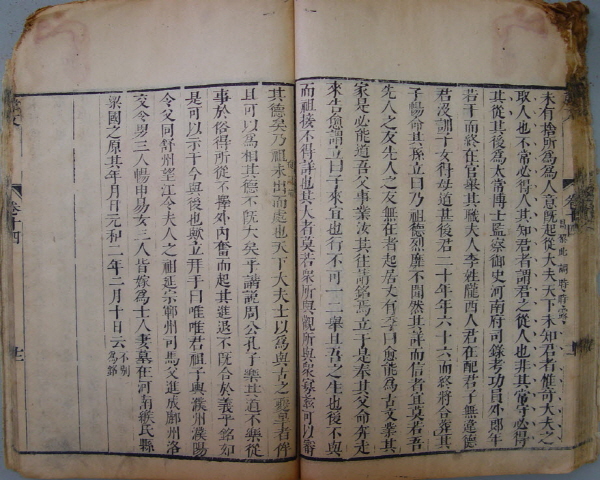 未有捨所為為人意既起從大夫天下未知君者惟奇大夫之
取人也不常必得人其知君者謂君之從人也非其常守必得
其從其後為太常博士監察御史河南府司錄考功員外郎年
若干而終在官舉其職夫人李姓隴西人君在配君子無違德
君沒訓子女得母道甚後君二十年年六十六而終將合葬其
子暢命其孫立曰乃祖德烈靡不聞然其詳而信者宜莫若吾
先人之友先人之友無在者起居丈有季曰愈能為古文業其
家是必能道吾父事業汝其往請銘焉立于是奉其父命奔走
來告愈謂立曰子來宜也行不可一二舉且吾之生也後不與
而祖接不得詳也其大者莫若眾所與觀所與眾寡茲可以審
其德矣乃祖未出而處也天下大夫士以為與古之夔皋者侔
且可以為相其德不既大矣乎講說周公孔子樂其道不樂從
事於俗得所從不擇外內奮而起其進退不既合於義乎銘如
是可以示于今與後也歟立拜手曰唯唯君祖子輿濮州濮陽
令父同舒州望江令夫人之祖延宗鄆州司馬父進成鄜州洛
交令男三人暢申易女三人皆嫁為士人妻墓在河南緱氏縣
梁國之原其年月日元和二年二月十日云不別為銘
卷十四